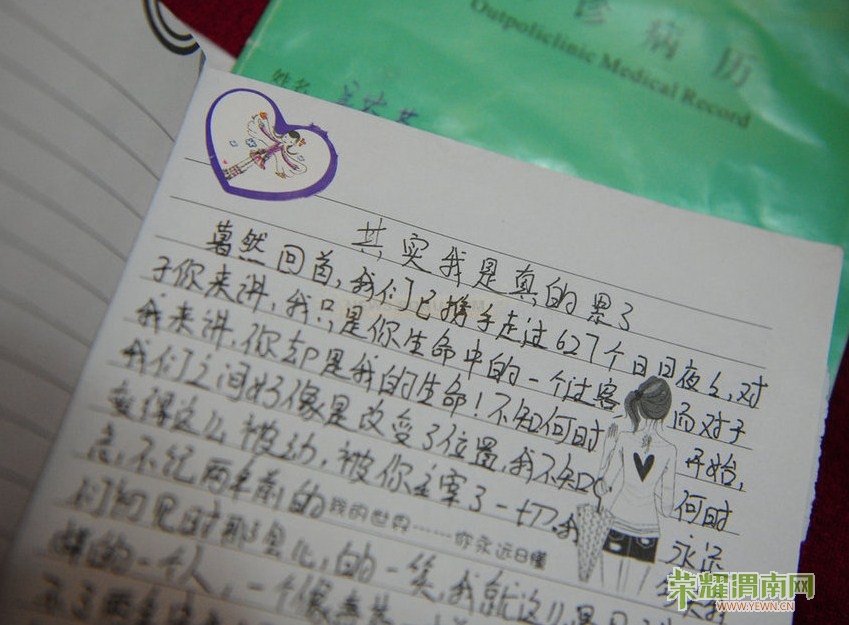 诊病历
Outpoliclinic Medical Record
姓名
其实我是真的累了
蓦然回首,我们已携手走过627个日日夜夜,对
于你来讲,我只是你生命中的一个过客 而对于
我来讲,你却是我的生命!不知何时 开始,
我们之间好像是改变了位置,我不知 何时
变得这么被动,被你主宰了一切,我 永
忘不记两年前的
我的世界……你永远日懂
们初见时那会儿,的一笑,我就这么
样的一个人,一个像
荣耀渭南网
WWW.YEWN.CN